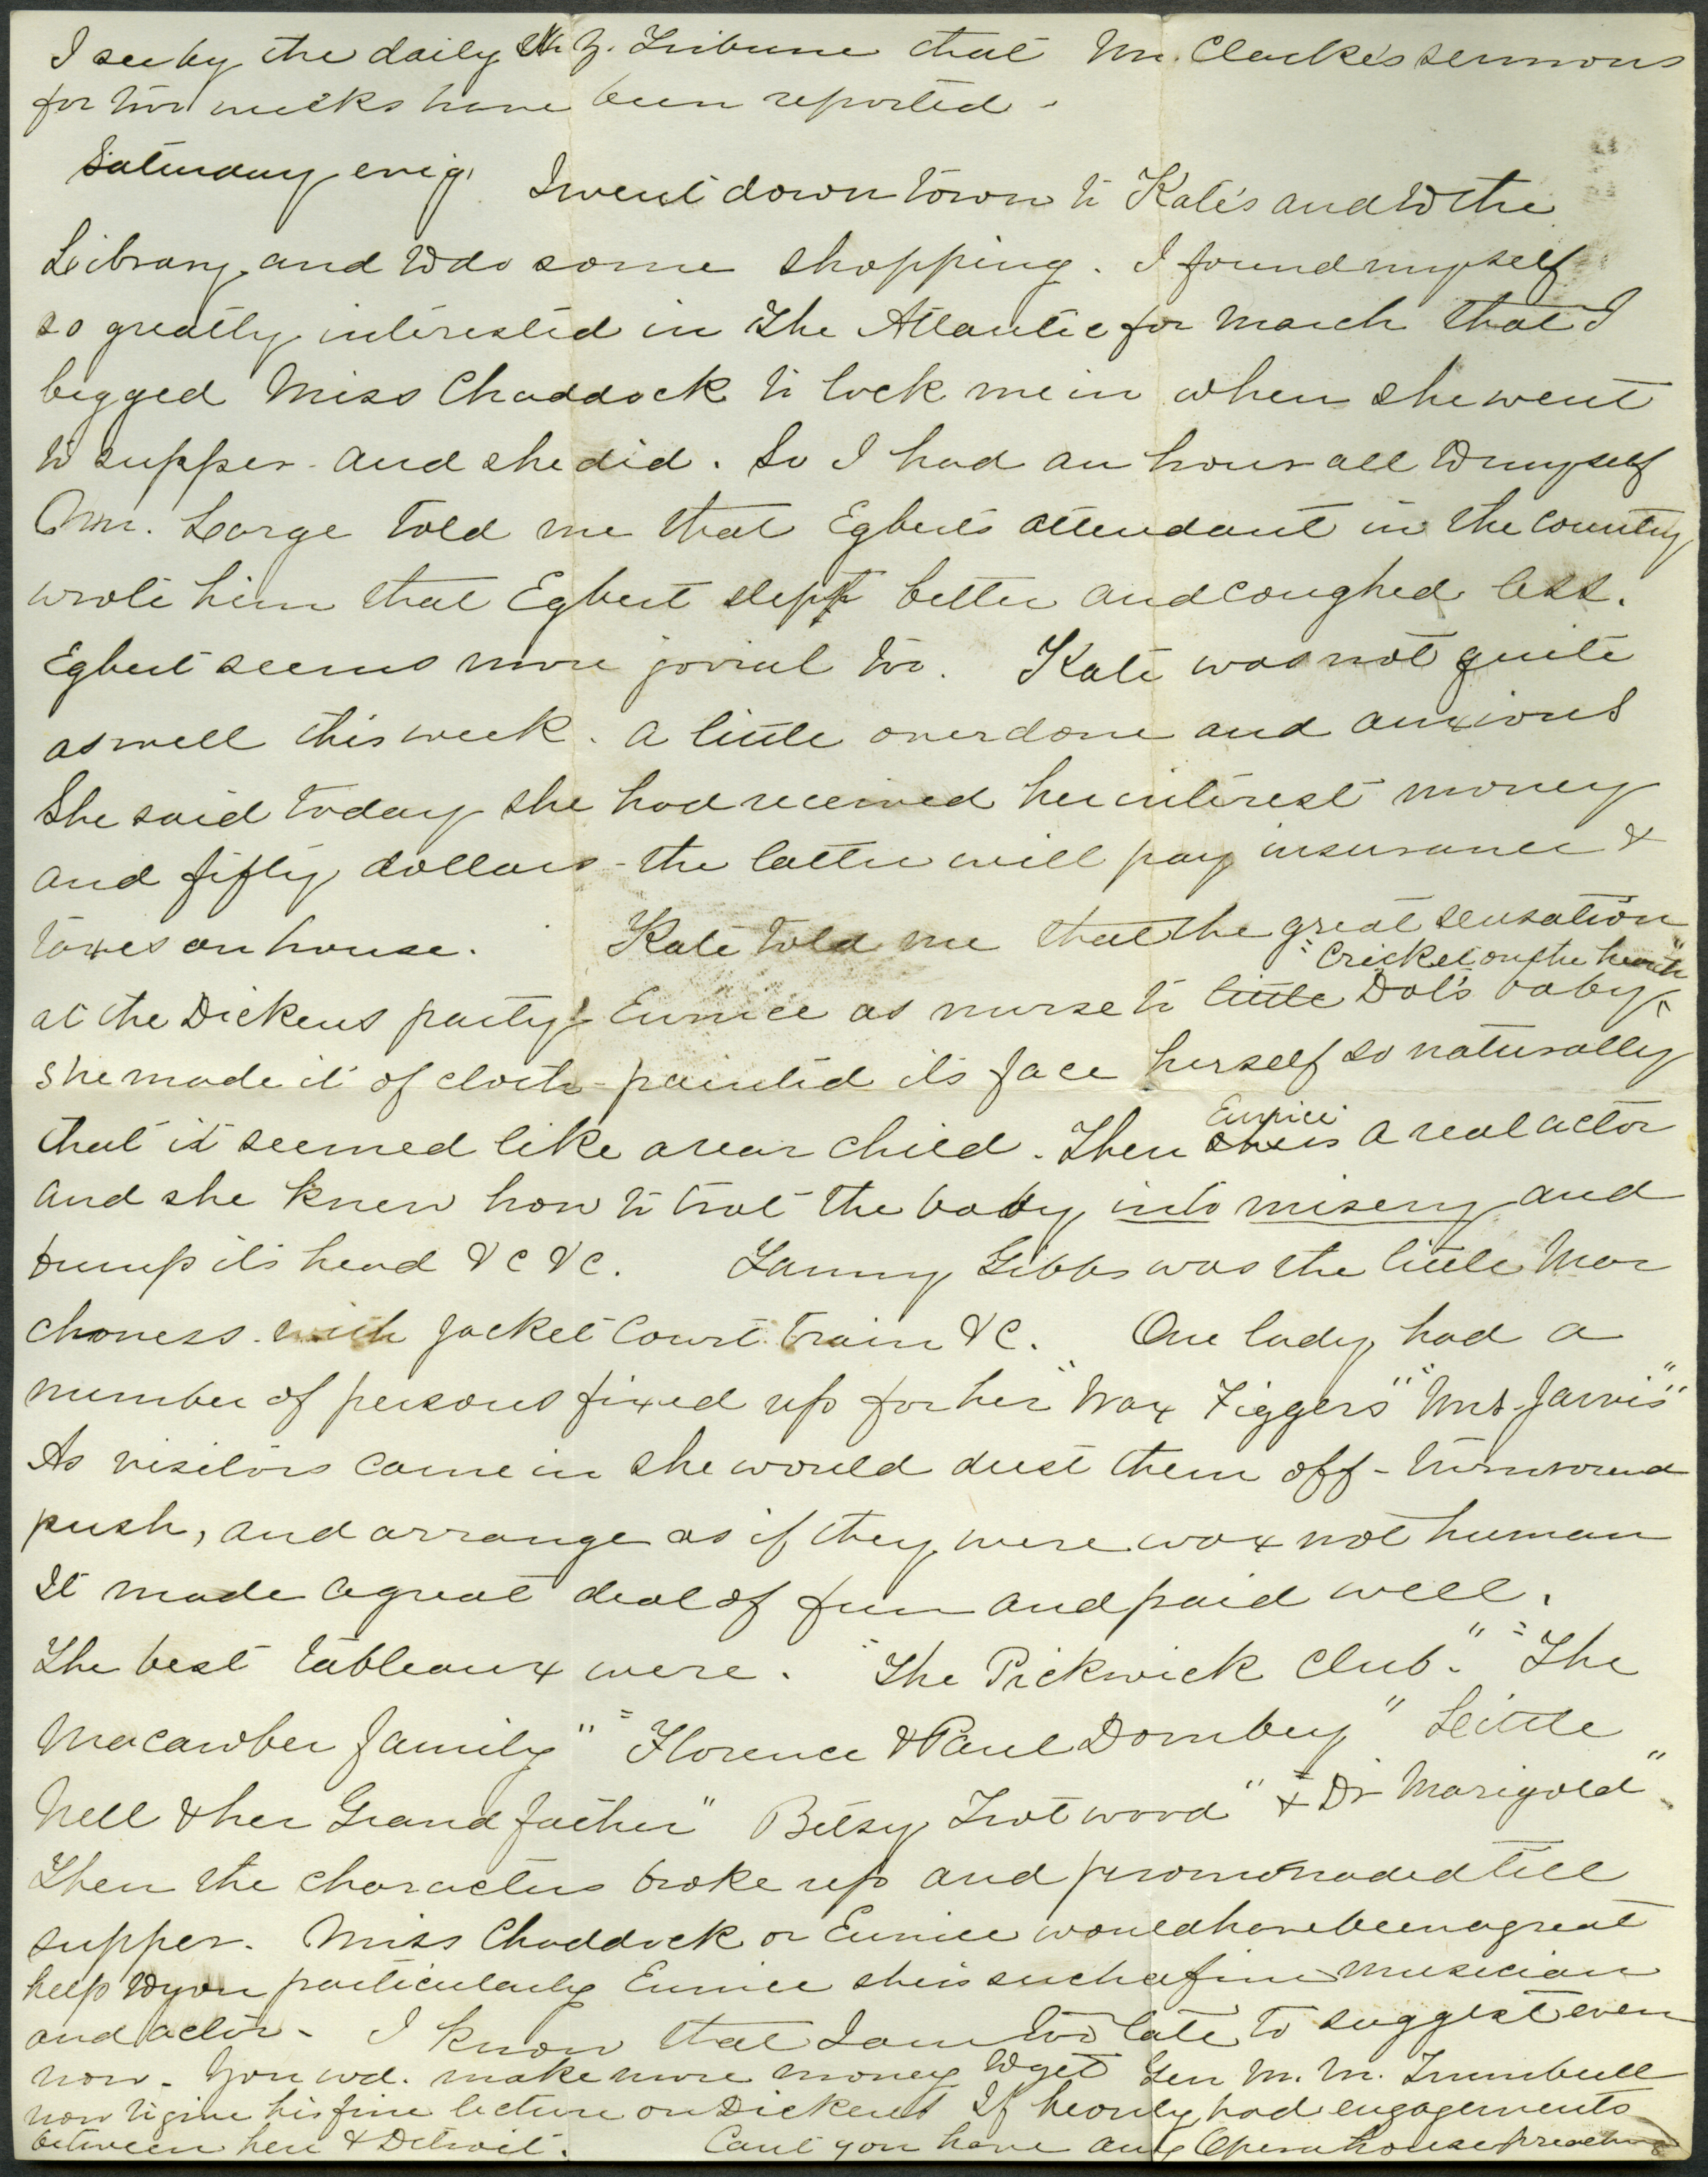 I see by the daily N. Y. Tribune that Mr. Clarke's sermons
for two weeks have been reported -
Saturday evig. I went down town to Kate's and to the
Library and to do some shopping. I found myself
so greatly interested in The Atlantic for March that I
begged Miss Chaddock to lock me in when she went
to supper - and she did. So I had an hour all to myself
Mr. Large told me that Egbert's attendant in the country
wrote him that Egbert slept better and coughed less.
Egbert seems more jovial too. Kate was not quite
as well this week. A little overdone and anxious
She said today she had received her interest money
and fifty dollars - the latter will pay insurance &
taxes on house. Kate told me that the great sensation
"Cricket on the hearth"
at the Dickens party Eunice as nurse to little Dot's baby ^
she made it of cloth - painted its face herself so naturally
that it seemed like a real child. Then Eunice is a real actor
and she knew how to trot the baby into misery and
bump its head &c &c. Fanny Gibbs was the little Mar
choness. with jacket court train &c. One lady had a
number of persons fixed up for her "Wax Figgers" "Mrs. Jarvis"
As visitors came in she would dust them off - turn round
push, and arrange as if they were wax not human
It made a great deal of fun and paid well.
The best tableaux were. "The Pickwick Club." "The
Macawber family" "Florence & Paul Dombey" Little
Nell & her Grandfather" Betsy Trotwood" & "Dr Marigold".
Then the characters broke up and promonaded till
supper. Miss Chaddock or Eunice would have been a great
help to you particularly Eunice she is such a fine musician
and actor - I know that I am too late to suggest even
now - You wd. make more money to get Gen M. M. Trumbull
now to give his fine lecture on Dickens If he only had engagements
between here & Detroit. Can't you have any Opera house preaching